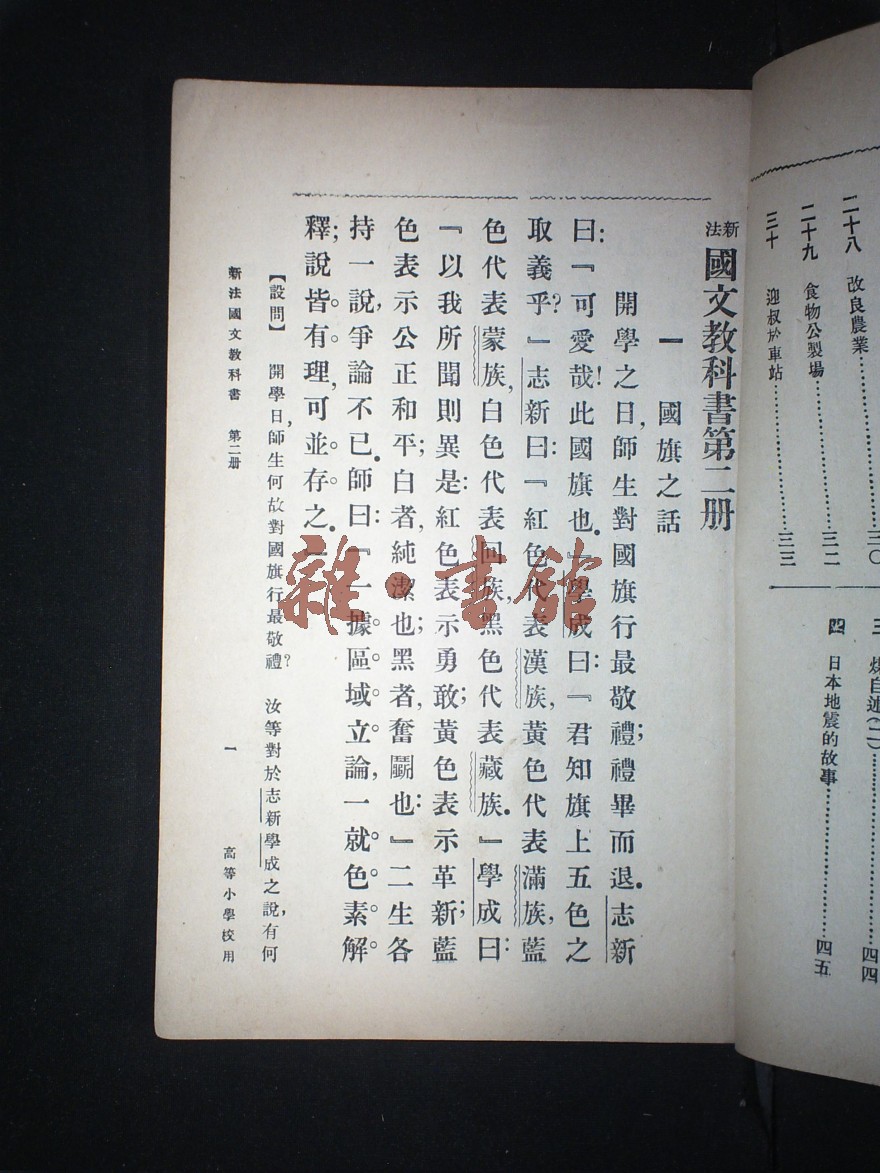 二十八 改良農業…………三〇
二十九 食物公製場…………三二
三十 迎叔於車站…………三三
三 煤自述(二)…………四四
四 日本地震的故事…………四五
新法國文教科書第二册
一 國旗之話
開學之日,師生對國旗行最敬禮;禮畢而退。志新
曰:『可愛哉!此國旗也。』學成曰:『君知旗上五色之
取義乎?』志新曰:『紅色代表漢族,黃色代表滿族,藍
色代表蒙族,白色代表回族,黑色代表藏族。』學成曰:
『以我所聞則異是:紅色表示勇敢;黃色表示革新;藍
色表示公正和平;白者,純潔也;黑者,奮鬭也:』二生各
持一說,爭論不已。師曰:『一據區域立論,一就色素解
釋;說皆有理,可並存之。』
【設問】 開學日,師生何故對國旗行最敬禮? 汝等對於志新學成之說,有何
新法國文教科書 第二册 一 高等小學校用
雜·書館